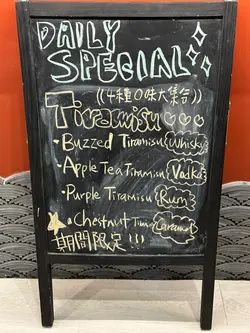 DAILY
SPECIAL
((4種口味大集合))
Tiramisu
·Buzzed Tiramisu Whisky
·Apple Tea Tiramisu Vodka
·Purple Tiramisu Rum
Chestnut Caramel
期間限定!!!